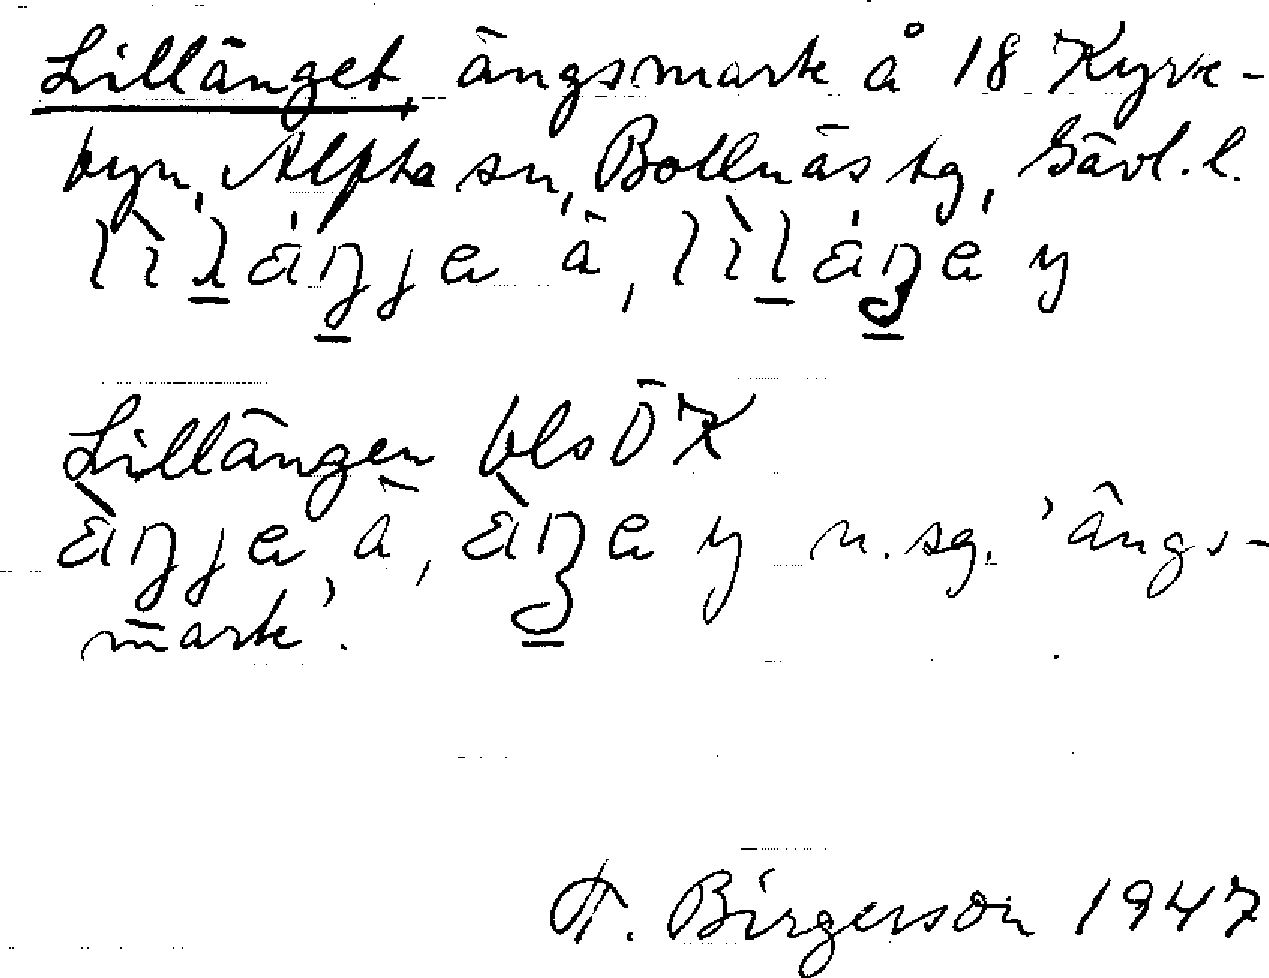 Lillänget, ängsmark å 18 Kyrk-
byn, Alfta sn, Bollnäs tg, Gävl. l.
lìláŋja ä, lìláŋa y
Lillängen bls ÖK
àŋja ä, àŋa y n. sg. 'ängs-
mark'.
F. Birgerson 1947